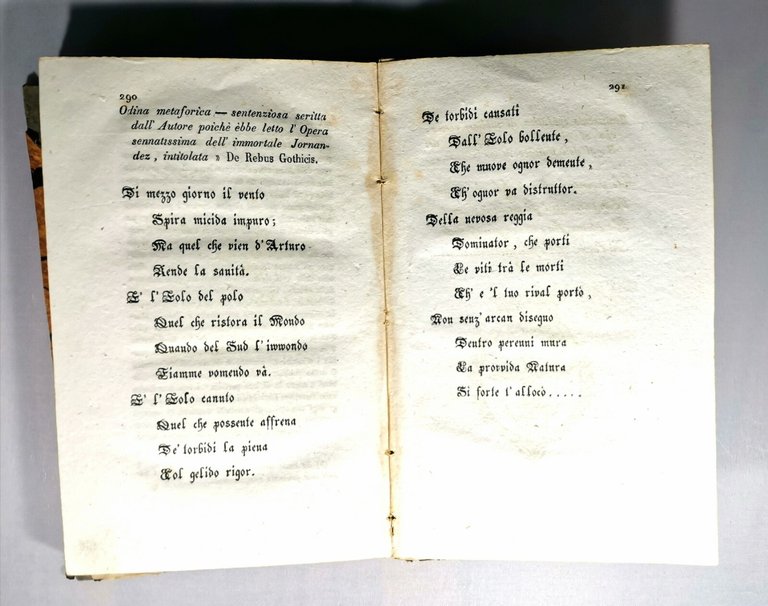 290
Odina metaforica — sentenziosa scritta
dall' Autore poichè èbbe letto l' Opera
sennatissima dell' immortale Jornan-
dez, intitolata » De Rebus Gothicis.
Di mezzo giorno il vento
Spira micida impuro;
Ma quel che vien d'Arturo
Rende la sanità.
E' l'Eolo del polo
Quel che ristora il Mondo
Quando del Sud l'iwwondo
Fiamme vomendo và.
E' l'Eolo canuto
Quel che possente affrena
De' torbidi la piena
Col gelido rigor.
291
De torbidi causati
Dall' Eolo bollente,
Che muove ognor demente,
Ch' ognor va distruttor.
Della nevosa reggia
Dominator, che porti
Le viti trà le morti
Ch' e 'l tuo rival portò,
Non senz' arcan disegno
Dentro perenni mura
La prorvida Natura
Si forte t'allocò.....